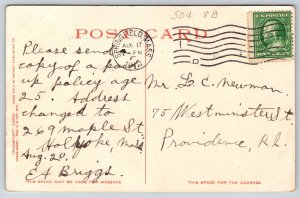 50¢ 8B
POST CARD
SPRINGFIELD, MASS.
AUG 12
D
Please send
copy of a
policy age
25. Address
changed to
269 maple St.
Holyoke, Mass
Aug. 20.
E A Briggs.
Mr. L. C. Newman
75 Westminster St
Providence, R.I.
THIS SPACE MAY BE USED FOR MESSAGE.
THIS SPACE FOR THE ADDRESS.